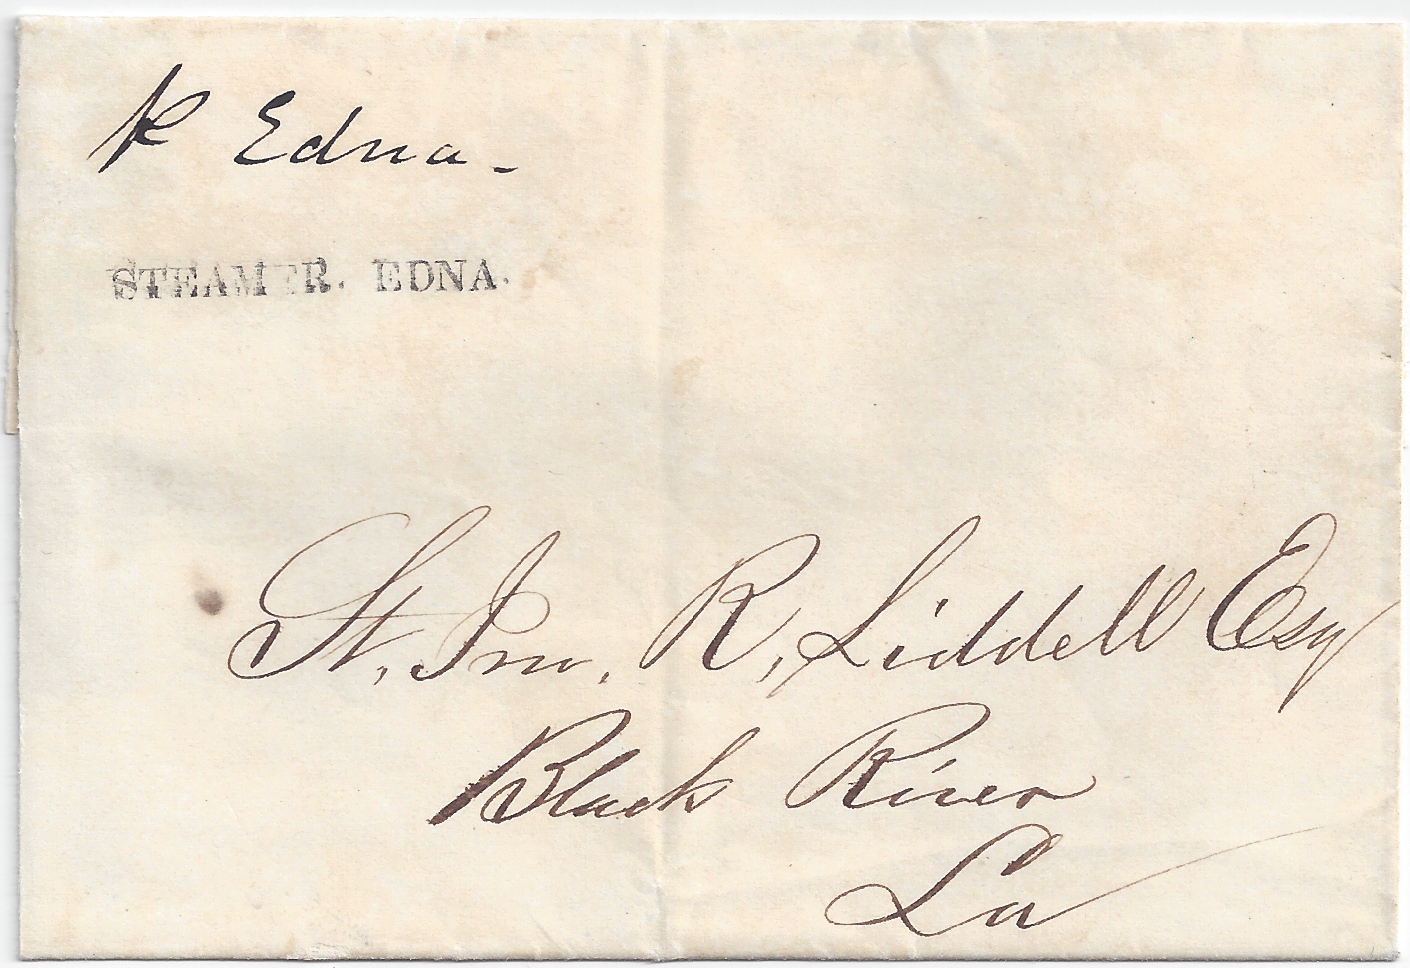 p Edna -
STEAMER. EDNA.
St. Jno. R, Liddell Esq
Black River
La